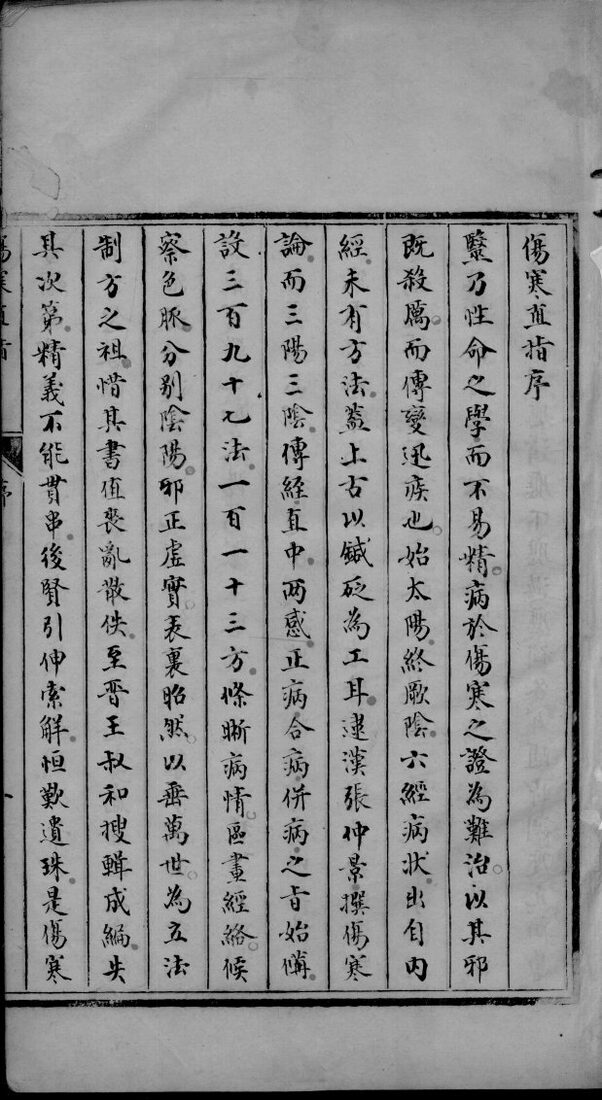 傷寒直指序
毉乃性命之學而不易精病於傷寒之證為難治以其邪
既殺厲而傳變迅疾也始太陽終厥陰六經病狀出自內
經未有方法葢上古以鍼砭為工耳逮漢張仲景撰傷寒
論而三陽三陰傳經直中两感正病合病併病之旨始備
設三百九十七法一百一十三方條晰病情區畫經絡候
察色脈分别陰陽邪正虛實表裏昭然以垂萬世為立法
制方之祖惜其書值喪亂散佚至晋王叔和搜輯成編失
其次第精義不能貫串後賢引伸索解恒歎遺珠是傷寒
傷寒直指
序
一